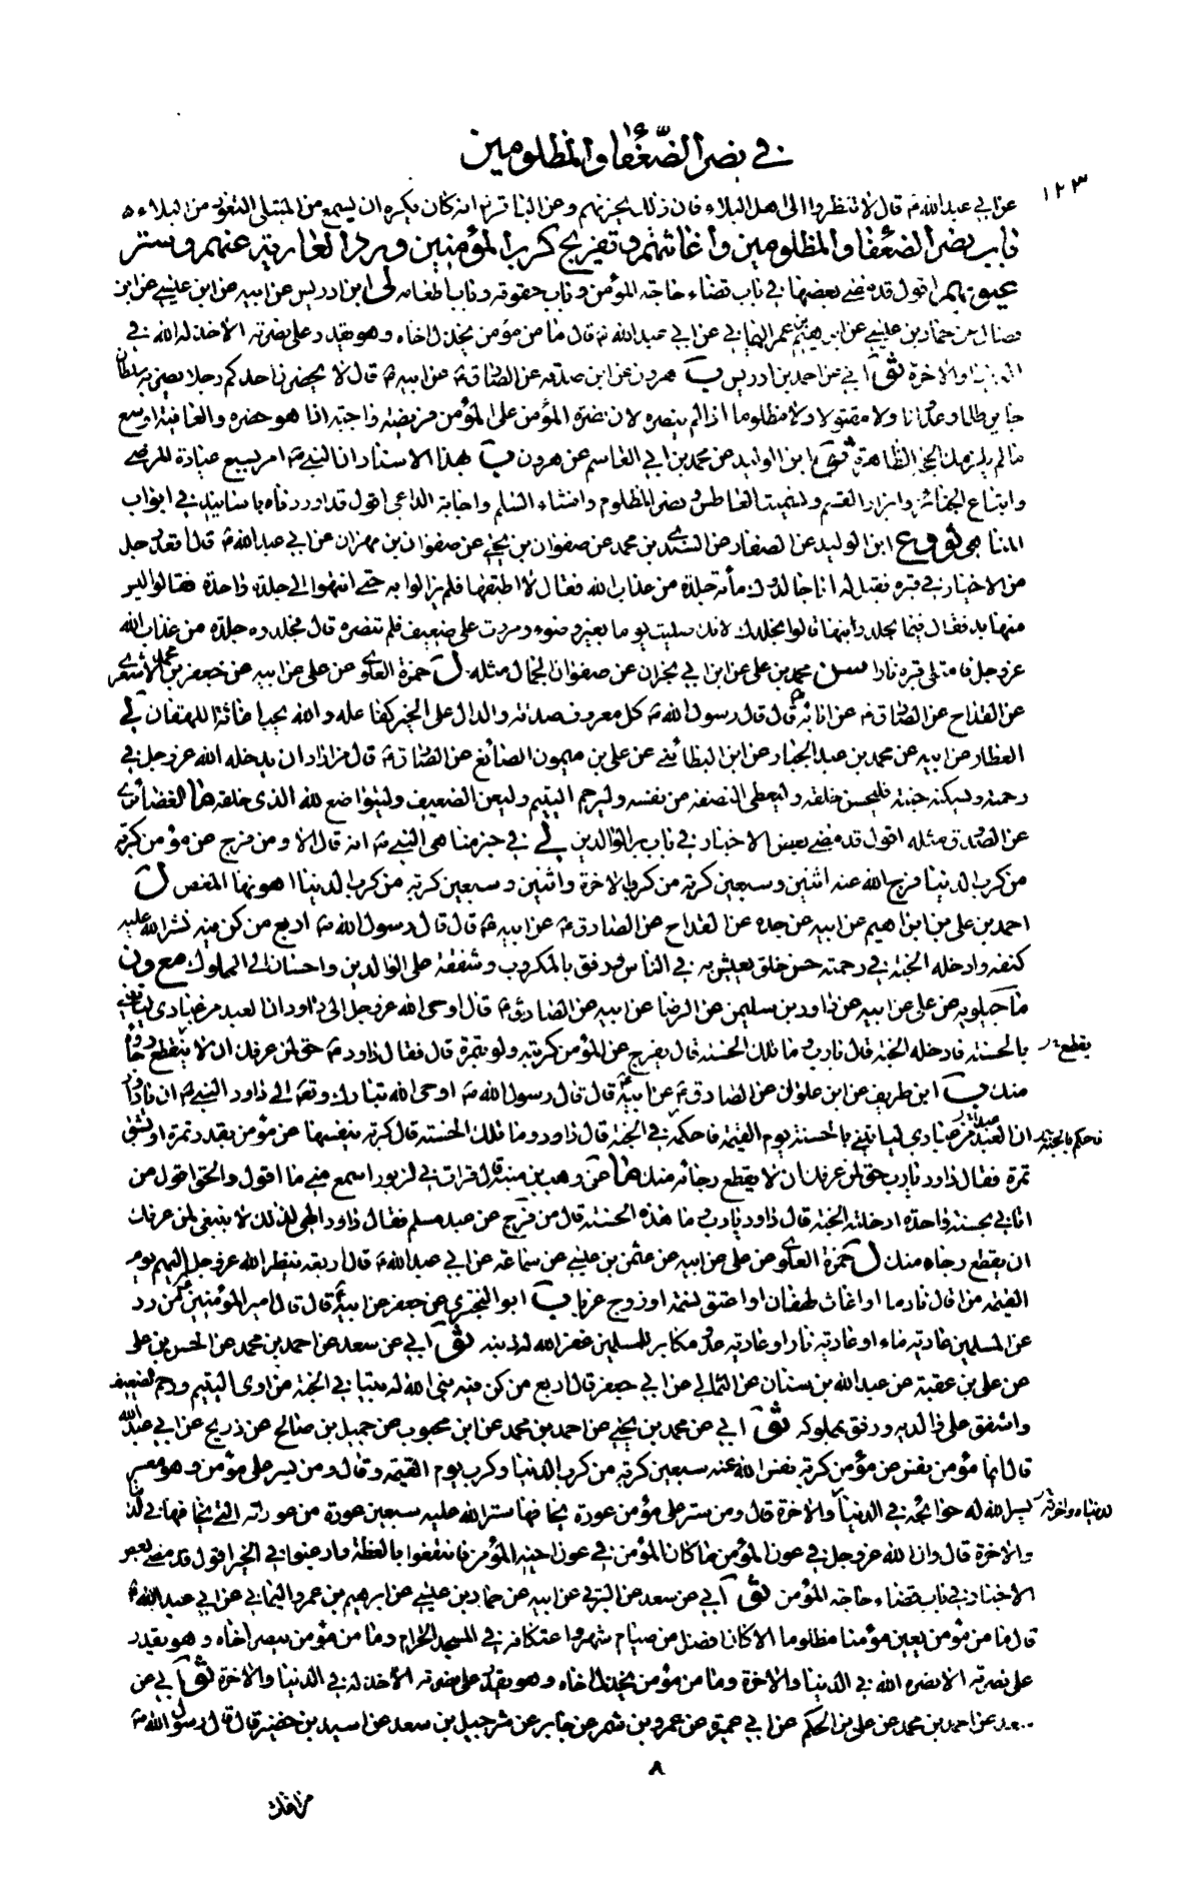 في نصر الضعفاء والمظلومين
١٢٣
عن ابي عبد الله ع قال لا تنظروا الى اهل البلاء فان ذلك يحزنهم وعن الباقر ع انه كان يكره ان يسمع من المبتلى التعوذ من البلاء
باب نصر الضعفاء والمظلومين واغاثتهم وتفريج كرب المؤمنين ورد العادية عنهم وستر
عيوبهم اقول قد مضى بعضها في باب قضاء حاجة المؤمن وباب حقوقه وباب اطعامه لى ابن ادريس عن ابيه عن ابن عيسى عن ابن
فضال عن حماد بن عيسى عن ابرهيم بن عمر اليماني عن ابي عبد الله ع قال ما من مؤمن يخذل اخاه وهو يقدر على نصرته الا خذله الله في
الدنيا والاخرة ثو ابي عن احمد بن ادريس ب هرون عن ابن صدقه عن الصادق ع عن ابيه ع قال لا يحضرن احدكم رجلا يضربه سلطان
جاير ظلما وعدوانا ولا مقتولا ولا مظلوما اذا لم ينصره لان نصرة المؤمن على المؤمن فريضة واجبة اذا هو حضره والعافية اوسع
ما لم يلزمك الحجة الظاهرة ثو ابن الوليد عن محمد بن ابي القاسم عن هرون ب بهذا الاسناد ان النبي ص امر بسبع عيادة المرضى
واتباع الجنائز وابرار القسم وتسميت العاطس ونصر المظلوم وافشاء السلم واجابة الداعي اقول قد اوردناه باسانيد في ابواب
المناهي ثو ع ابن الوليد عن الصفار عن السندي بن محمد عن صفوان بن يحيى عن صفوان بن مهران عن ابي عبد الله ع قال اقعد رجل
من الاخيار في قبره فقيل له انا جالدوك مأة جلدة من عذاب الله فقال لا اطيقها فلم يزالوا به حتى انتهوا الى جلدة واحدة فقالوا ليس
منها بد فقال فيما تجلدوانيها قالوا نجلدك لانك صليت يوما بغير وضوء ومررت على ضعيف فلم تنصره قال فجلدوه جلدة من عذاب الله
عز وجل فامتلى قبره نارا سن محمد بن علي عن ابن ابي نجران عن صفوان الجمال مثله ل حمزة العلوي عن علي عن ابيه عن جعفر بن محمد الاشعري
عن القداح عن الصادق ع عن ابائه ع قال قال رسول الله ص كل معروف صدقة والدال على الخير كفاعله والله يحب اغاثة اللهفان لى
العطار عن ابيه عن محمد بن عبد الجبار عن ابن البطائني عن علي بن ميمون الصائغ عن الصادق ع قال من اراد ان يدخله الله عز وجل في
رحمته ويسكنه جنته فليحسن خلقه وليعطي النصفة من نفسه وليرحم اليتيم وليعن الضعيف وليتواضع لله الذي خلقه ما الغضائري
عن الصدوق مثله اقول قد مضى بعض الاخبار في باب بر الوالدين لى في خبر مناهي النبي ص انه قال الا ومن فرج عن مؤمن كربة
من كرب الدنيا فرج الله عنه اثنين وسبعين كربة من كرب الاخرة واثنين وسبعين كربة من كرب الدنيا اهونها المغص ل
احمد بن علي بن ابراهيم عن ابيه عن جده عن القداح عن الصادق ع عن ابيه ع قال قال رسول الله ص اربع من كن فيه نشر الله عليه
كنفه وادخله الجنة في رحمته حسن خلق يعيش به في الناس ورفق بالمكروب وشفقة على الوالدين واحسان الى المملوك مع ون
ماجيلويه عن علي عن ابيه عن داود بن سليمن عن الرضا عن ابيه عن الصادق ع قال اوحى الله عز وجل الى داود ان العبد من عبادي ليأتيني
بالحسنة فادخله الجنة قال يارب وما تلك الحسنة قال يفرج عن المؤمن كربته ولو بتمرة قال فقال داود ع حق لمن عرفك ان لا ينقطع رجاؤه
يقطع
منك ب ابن طريف عن ابن علوان عن الصادق ع عن ابيه ع قال قال رسول الله ص اوحى الله تبارك وتعالى الى داود النبي ع ان ياداود
ان العبد من عبادي ليأتيني بالحسنة يوم القيمة فاحكمه في الجنة قال داود وما تلك الحسنة قال كربة ينفسها عن مؤمن بقدر تمرة او بشق
فاحكم بالجنة
تمرة فقال داود يارب حق لمن عرفك ان لا يقطع رجائه منك ما عن وهب بن منبه قال قرات في الزبور اسمع مني ما اقول والحق اقول من
اتاني بحسنة واحدة ادخلته الجنة قال داود يارب وما هذه الحسنة قال من فرج عن عبد مسلم فقال داود الهي لذلك لا ينبغي لمن عرفك
ان يقطع رجاه منك ل حمزة العلوي عن علي عن ابيه عن عثمن بن عيسى عن سماعة عن ابي عبد الله ع قال اربعة ينظر الله عز وجل اليهم يوم
القيمة من اقال نادما او اغاث لهفان او اعتق نسمة او زوج عزبا ب ابو البختري عن جعفر عن ابيه ع قال قال امير المؤمنين ع من رد
عن المسلمين عادية ماء او عادية نار او عادية عدو مكابر للمسلمين غفر الله له ذنبه ثو ابي عن سعد عن احمد بن محمد عن الحسن بن علي
عن علي بن عقبة عن عبد الله بن سنان عن الثمالي عن ابي جعفر قال اربع من كن فيه بنى الله له بيتا في الجنة من اوى اليتيم ورحم الضعيف
واشفق على والديه ورفق بمملوكه ثو ابي عن محمد بن يحيى عن احمد بن محمد عن ابن محبوب عن جميل بن صالح عن ذريح عن ابي عبد الله
قال ايما مؤمن نفس عن مؤمن كربة نفس الله عنه سبعين كربة من كرب الدنيا وكرب يوم القيمة وقال ومن يسر على مؤمن وهو معسر
يسر الله له حوائجه في الدنيا والاخرة قال ومن ستر على مؤمن عورة يخافها ستر الله عليه سبعين عورة من عوراته التي يخافها في الدنيا
والاخرة قال وان الله عز وجل في عون المؤمن ما كان المؤمن في عون اخيه المؤمن فانتفعوا بالعظة وارغبوا في الخير اقول قد مضى بعض
الاخبار في باب قضاء حاجة المؤمن ثو ابي عن سعد عن البرقي عن ابيه عن حماد بن عيسى عن ابرهيم بن عمر واليماني عن ابي عبد الله ع
قال ما من مؤمن يعين مؤمنا مظلوما الا كان افضل من صيام شهر واعتكافه في المسجد الحرام وما من مؤمن ينصر اخاه وهو يقدر
على نصرته الا نصره الله في الدنيا والاخرة وما من مؤمن يخذل اخاه وهو يقدر على نصرته الا خذله في الدنيا والاخرة ثو ابي عن
سعد عن احمد بن محمد عن علي بن الحكم عن ابي عن عمرو بن شمر عن جابر عن شرحبيل بن سعد عن اسيد بن حضير قال قال رسول الله ص
٨
من اغاث